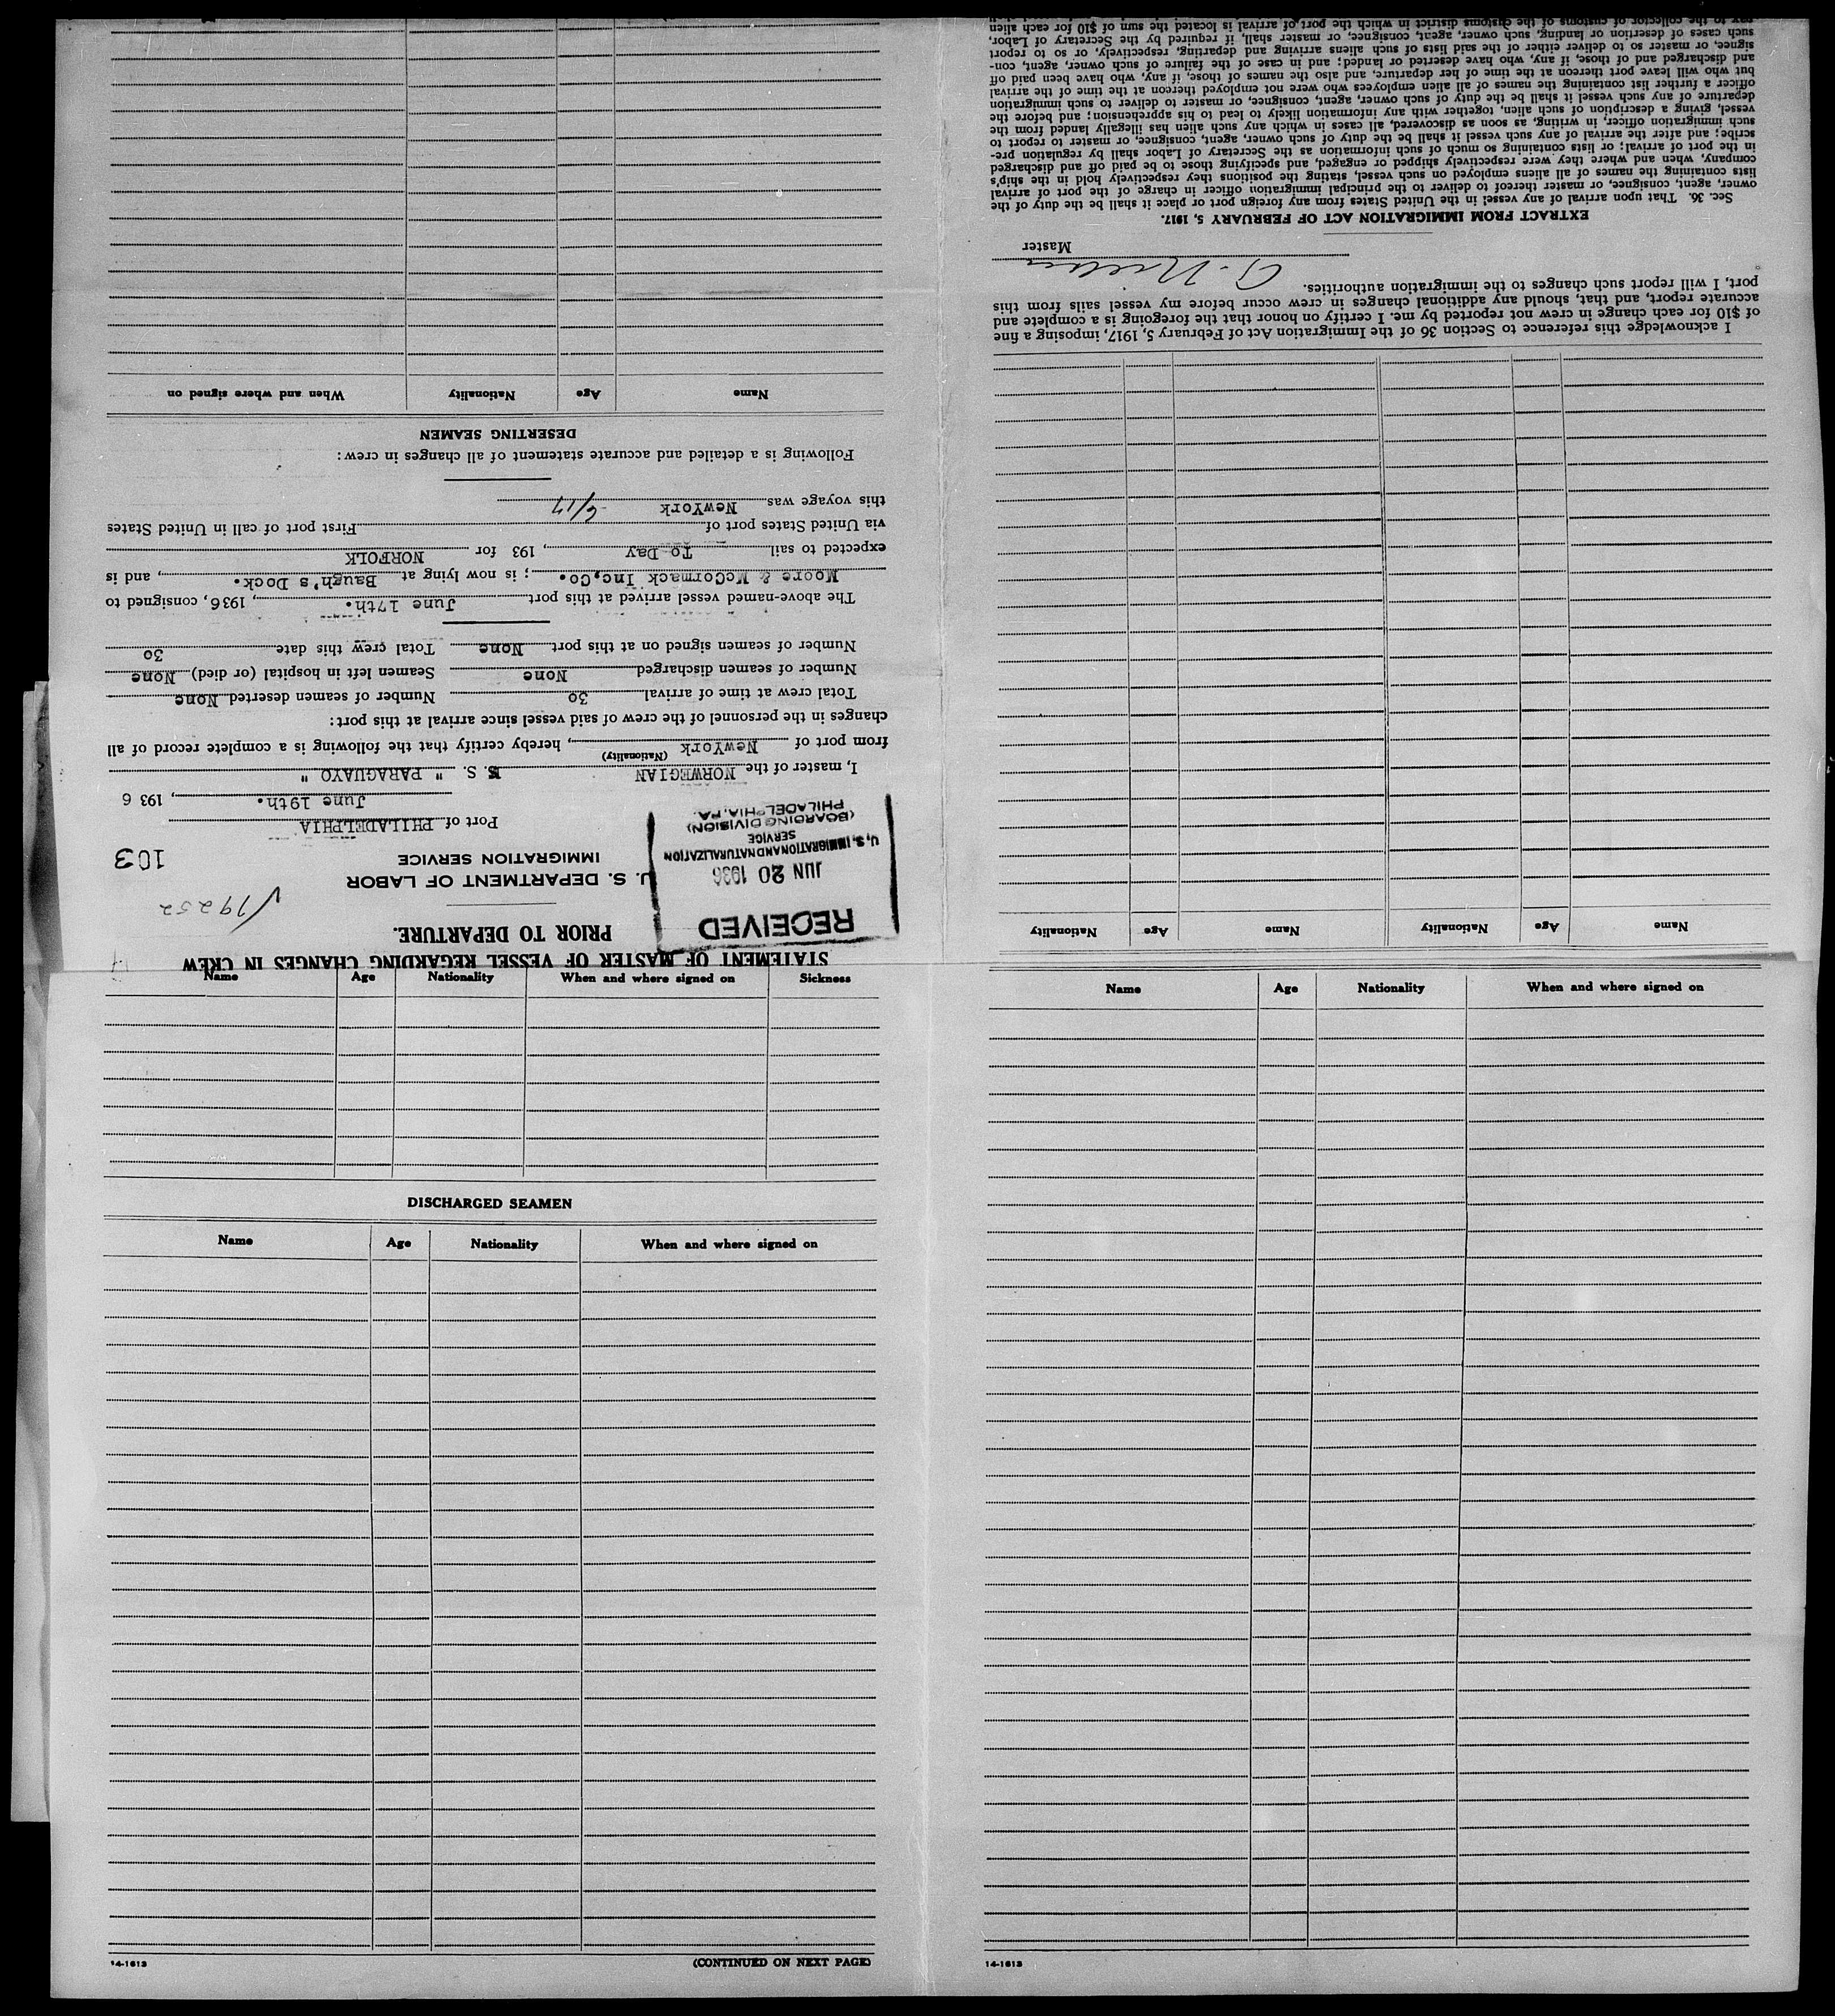 STATEMENT OF MASTER OF VESSEL REGARDING CHANGES IN CREW
PRIOR TO DEPARTURE.
RECEIVED
JUN 20 1936
U. S. IMMIGRATION AND NATURALIZATION
SERVICE
(BOARDING DIVISION)
PHILADELPHIA, PA.
√19252
U. S. DEPARTMENT OF LABOR
IMMIGRATION SERVICE
103
Port of PHILADELPHIA
June 19th. , 193 6
I, master of the NORWEGIAN S. S. " PARAGUAYO "
(Nationality)
from port of NewYork , hereby certify that the following is a complete record of all
changes in the personnel of the crew of said vessel since arrival at this port:
Total crew at time of arrival 30 Number of seamen deserted None
Number of seamen discharged None Seamen left in hospital (or died) None
Number of seamen signed on at this port None Total crew this date 30
The above-named vessel arrived at this port June 17th. , 1936, consigned to
Moore & McCormack Inc,Co. ; is now lying at Baugh's Dock. , and is
expected to sail To Day , 193 for NORFOLK
via United States port of First port of call in United States
this voyage was NewYork 6/17
Following is a detailed and accurate statement of all changes in crew:
DESERTING SEAMEN
Name Age Nationality When and where signed on
Name Age Nationality Name Age Nationality
I acknowledge this reference to Section 36 of the Immigration Act of February 5, 1917, imposing a fine
of $10 for each change in crew not reported by me. I certify on honor that the foregoing is a complete and
accurate report, and that, should any additional changes in crew occur before my vessel sails from this
port, I will report such changes to the immigration authorities.
Master
EXTRACT FROM IMMIGRATION ACT OF FEBRUARY 5, 1917.
Sec. 36. That upon arrival of any vessel in the United States from any foreign port or place it shall be the duty of the
owner, agent, consignee, or master thereof to deliver to the principal immigration officer in charge of the port of arrival
lists containing the names of all aliens employed on such vessel, stating the positions they respectively hold in the ship's
company, when and where they were respectively shipped or engaged, and specifying those to be paid off and discharged
in the port of arrival; or lists containing so much of such information as the Secretary of Labor shall by regulation pre-
scribe; and after the arrival of any such vessel it shall be the duty of such owner, agent, consignee, or master to report to
such immigration officer, in writing, as soon as discovered, all cases in which any such alien has illegally landed from the
vessel, giving a description of such alien, together with any information likely to lead to his apprehension; and before the
departure of any such vessel it shall be the duty of such owner, agent, consignee, or master to deliver to such immigration
officer a further list containing the names of all alien employees who were not employed thereon at the time of the arrival
but who will leave port thereon at the time of her departure, and also the names of those, if any, who have been paid off
and discharged and of those, if any, who have deserted or landed; and in case of the failure of such owner, agent, con-
signee, or master so to deliver either of the said lists of such aliens arriving and departing, respectively, or so to report
such cases of desertion or landing, such owner, agent, consignee, or master shall, if required by the Secretary of Labor,
pay to the collector of customs of the customs district in which the port of arrival is located the sum of $10 for each alien
Name Age Nationality When and where signed on Sickness
DISCHARGED SEAMEN
Name Age Nationality When and where signed on
14-1613
(CONTINUED ON NEXT PAGE)
Name Age Nationality When and where signed on
14-1613